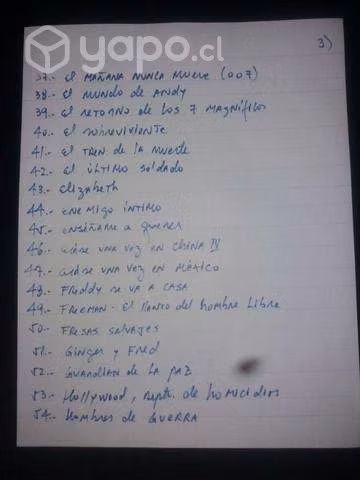 yapo.cl
3)
37.- El MAÑANA NUNCA MUERE (007)
38.- El MUNDO DE ANDY
39.- El RETORNO DE LOS 7 MAGNÍFICOS
40.- El SOBREVIVIENTE
41.- El TREN DE LA MUERTE
42.- El ÚLTIMO SOLDADO
43.- Elizabeth
44.- ENEMIGO ÍNTIMO
45.- ENSÉÑAME A QUERER
46.- ERASE UNA VEZ EN CHINA IV
47.- ERASE UNA VEZ EN MÉXICO
48.- FREDDY SE VA A CASA
49.- FREEMAN - El llanto del hombre LIBRE
50.- FRESAS SALVAJES
51.- GINGER y FRED
52.- GUARDIAN DE LA PAZ
53.- Hollywood, Dpto. de homicidios
54.- hombres DE GUERRA